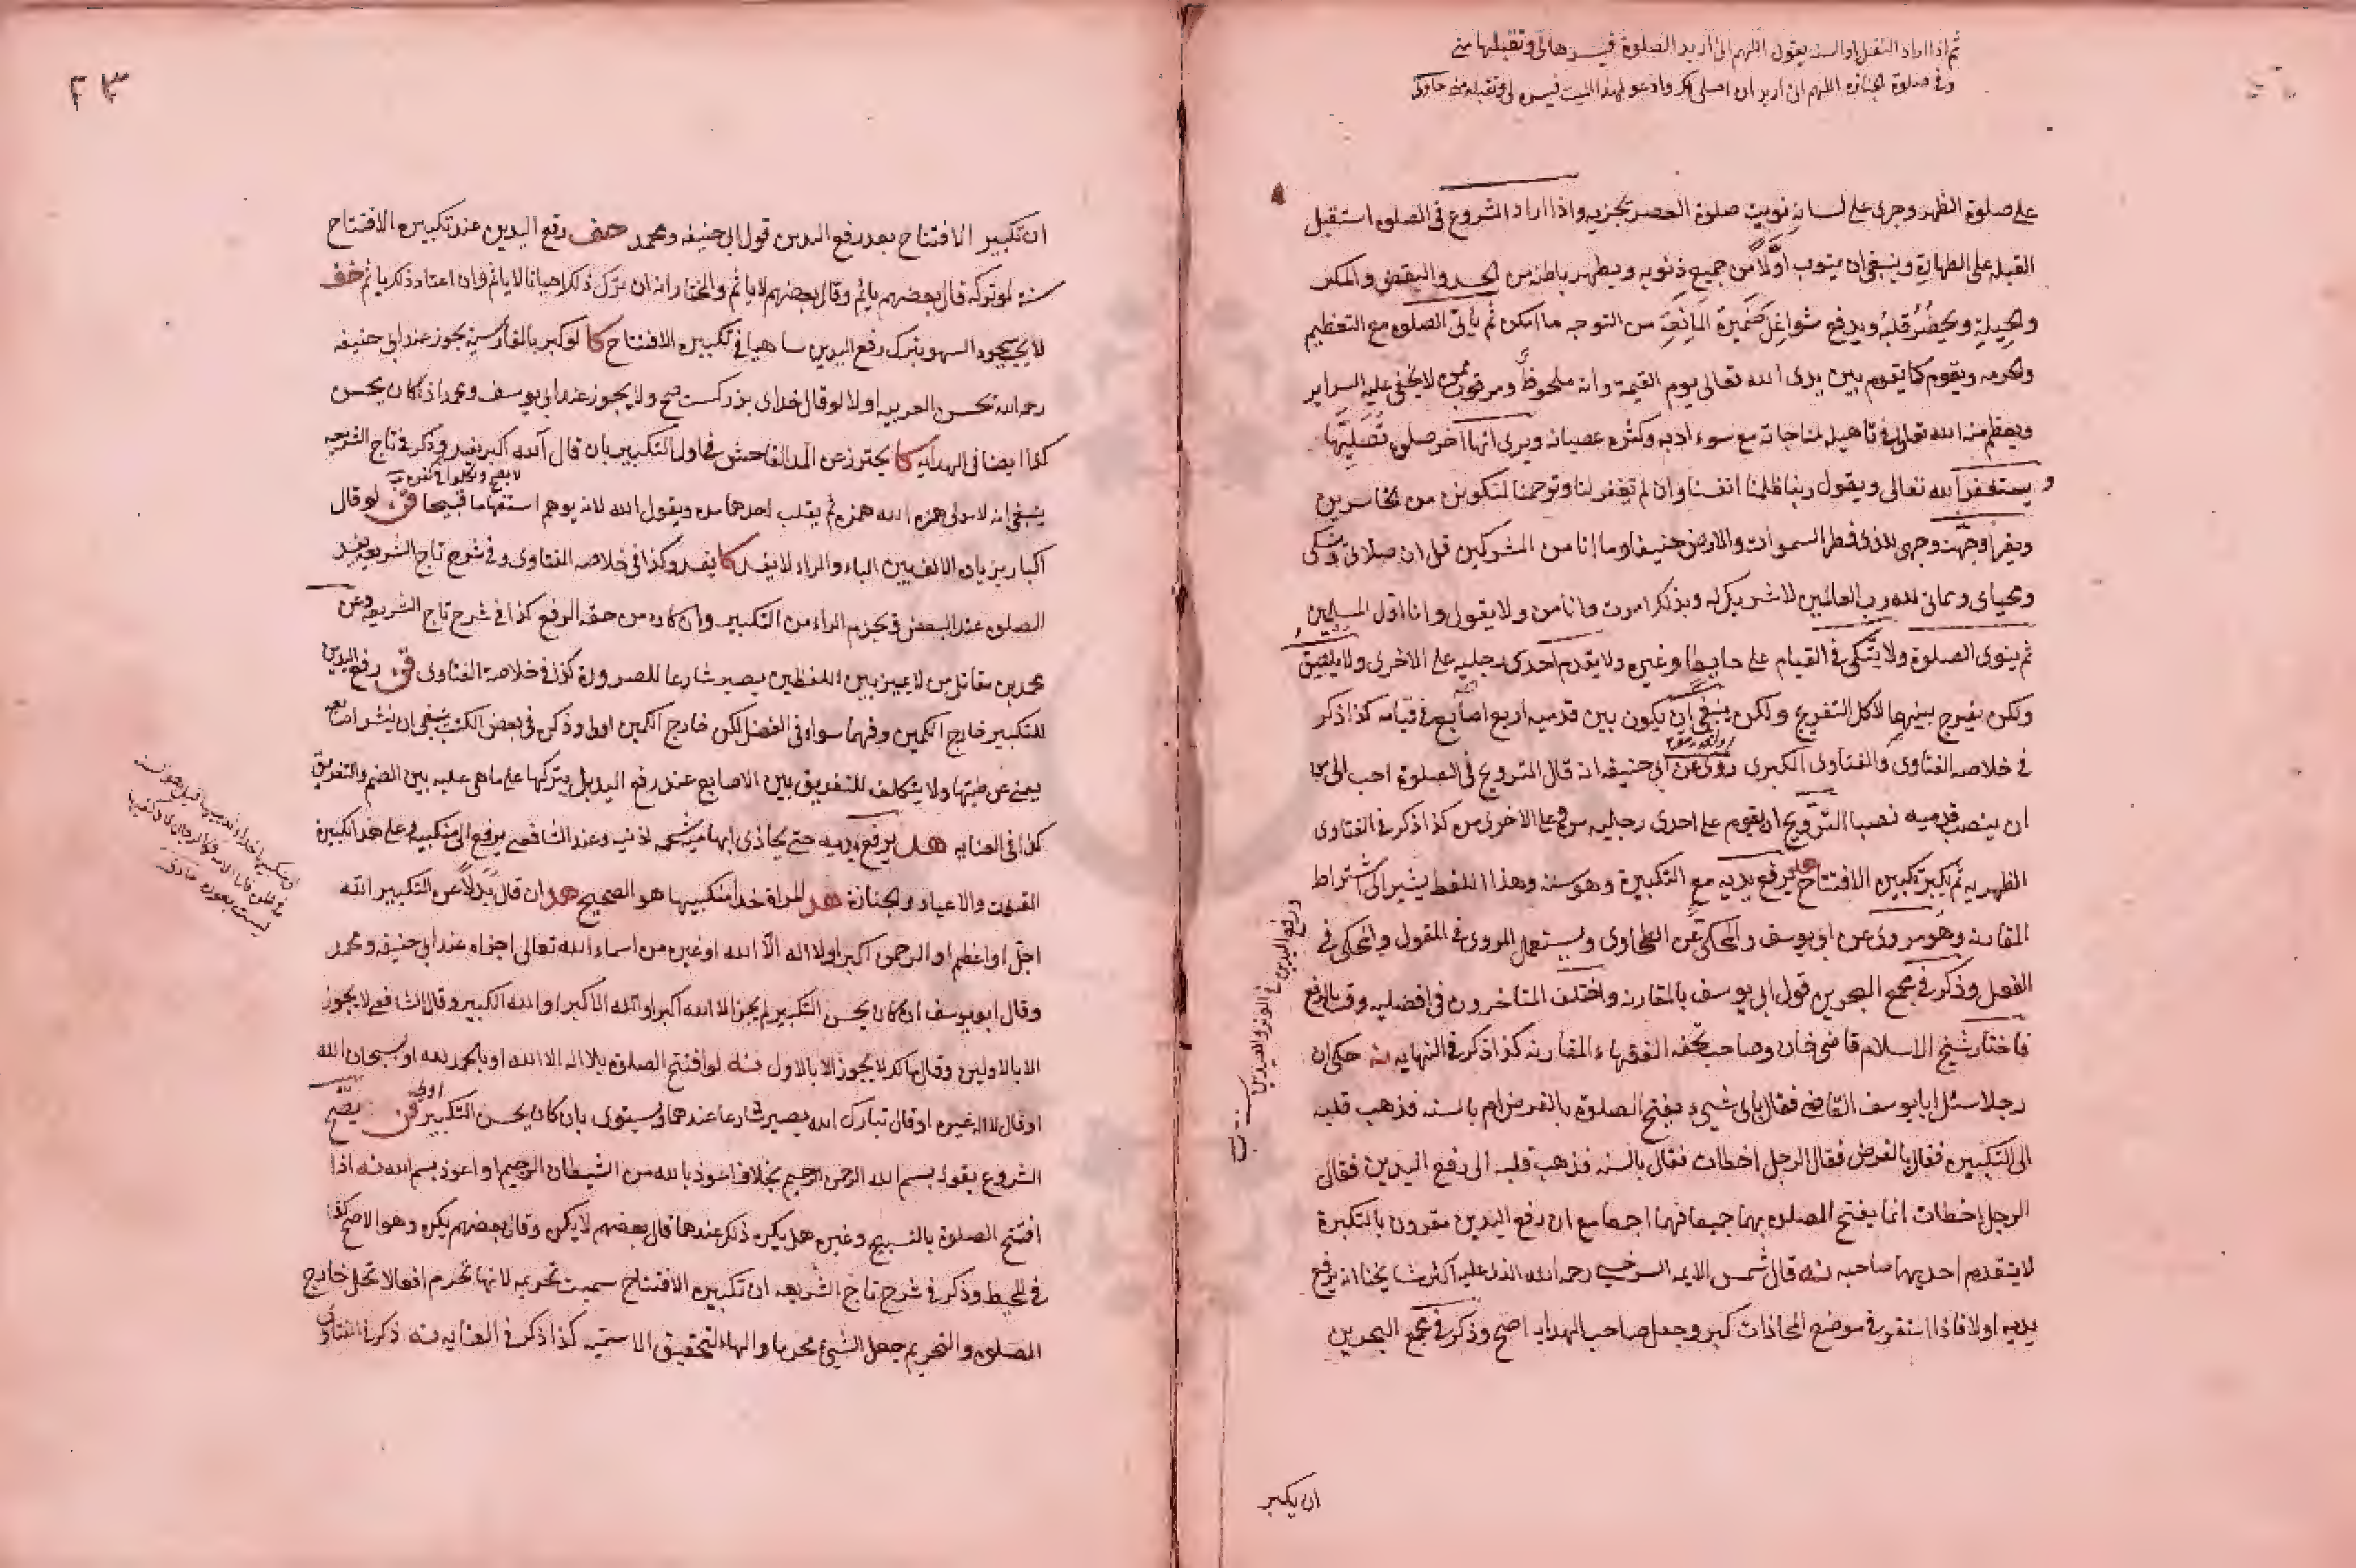 ثم اذا اراد النفل او السنة يقول اللهم انى اريد الصلوة فيسرها لى وتقبلها منى
وفى صلوة الجنازة اللهم انى اريد ان اصلى لك وادعو لهذا الميت فيسره لى وتقبله منى
على صلوة الظهر وجرى على لسانه نويت صلوة العصر يجزيه واذا اراد الشروع فى الصلوه استقبل
القبلة على الطهارة وينبغى ان يتوب اولا من جميع ذنوبه ويطهر باطنه من الحسد والبغض والمكر
والحيلة ويحضر قلبه ويدفع شواغل ضميره المانعة من التوجه ما امكن ثم يأتى الصلوه مع التعظيم
والحرمه ويقوم كما يقوم بين يدى الله تعالى يوم القيمة وانه ملحوظ ومرقوب ممن لا يخفى عليه السراير
ويعظم منه الله تعالى فى تاهيله لمناجاته مع سوء ادبه وكثرة عصيانه ويرى انها اخر صلوة تصليها
ويستغفر الله تعالى ويقول ربنا ظلمنا انفسنا وان لم تغفر لنا وترحمنا لنكونن من الخاسرين
ويقرأ وجهت وجهى للذى فطر السموات والارض حنيفا وما انا من المشركين قل ان صلاتى ونسكى
ومحياى ومماتى لله رب العالمين لا شريك له وبذلك امرت وانا من ولا يقول وانا اول المسلمين
ثم ينوى الصلوة ولا يتكى فى القيام على حايط او غيره ولا يقدم احدى رجليه على الاخرى ولا يلصق
ولكن يفرج بينهما لا كل التفريج ولكن ينبغى ان يكون بين قدميه اربع اصابع فى قيامه كذا ذكر
فى خلاصه الفتاوى والفتاوى الكبرى روى عن ابى حنيفه انه قال التروح فى الصلوة احب الى من
ان ينصب قدميه نصبا التروح ان يقوم على احدى رجليه مرة وعلى الاخرى مرة كذا ذكر فى الفتاوى
الظهيريه ثم يكبر تكبيره الافتتاح هد يرفع يديه مع التكبيرة وهو سنه وهذا اللفظ يشير الى اشتراط
المقارنه وهو مروى عن ابى يوسف والمحكى عن الطحاوى ويستعمل المروى فى المقول والمحكى فى
الفعل وذكر فى مجمع البحرين قول ابى يوسف بالمقارنه واختلف المتاخرون فى افضليه وقت الرفع
فاختار شيخ الاسلام قاضى خان وصاحب تحفه الفقهاء المقارنه كذا ذكر فى النهايه حكى ان
رجلا سئل ابا يوسف القاضى فقال باى شىء يفتح الصلوة بالفرض ام بالسنه فذهب قلبه
الى التكبيره فقال بالفرض فقال الرجل اخطات فقال بالسنه فذهب قلبه الى رفع اليدين فقال
الرجل اخطات انما يفتح الصلوه بهما جميعا فهما اجمعا مع ان رفع اليدين مقرون بالتكبيرة
لا يتقدم احديهما صاحبه قال شمس الايمه السرخسى رحمه الله الذى عليه اكثر مشايخنا انه يرفع
يديه اولا فاذا استقر فى موضع المحاذات كبر وجعل صاحب الهدايه اصح وذكر فى مجمع البحرين
ورفع اليدين فى الوتر والعيدين
ان تكبير
٢٣
ان تكبير الافتتاح بعد رفع اليدين قول ابى حنيفه ومحمد حف رفع اليدين عند تكبيره الافتتاح
سنة لو تركه قال بعضهم ياثم وقال بعضهم لا ياثم والمختار انه ان ترك ذلك احيانا لا ياثم وان اعتاد ذلك ياثم حف
لا يجب سجود السهو بترك رفع اليدين ساهيا فى تكبيره الافتتاح كا لو كبر بالفارسية يجوز عند ابى حنيفه
رحمه الله يحسن العربيه او لا لو قال خداى بزركست صح ولا يجوز عند ابى يوسف ومحمد اذا كان يحسن
كذا ايضا فى الهدايه كا يحترز عن المد الفاحش فى اول التكبير بان قال آلله اكبر يفسد وذكر فى تاج الشريعه
ينبغى انه لا مد لى همزه الله همزه ثم يقلب احدهما مده ويقول الله لانه يوهم استفهاما قبيحا فى لو قال
اكبار بزياده الالف بين الباء والراء لا يفسد كا يفسد وكذا فى خلاصه الفتاوى وفى شرح تاج الشريعه يفسد
الصلوه عند البعض فى يجزم الراء من التكبير وان كان من حقه الرفع كذا فى شرح تاج الشريعه وعن
محمد بن مقاتل من لا يميز بين اللفظين يصير شارعا للضرورة كذا فى خلاصة الفتاوى فى رفع اليدين
للتكبير خارج الكمين وفيهما سواء فى الفضل لكن خارج الكمين اولى وذكر فى بعض الكتب ينبغى ان ينشر اصابعه
يعنى عن طيتها ولا يتكلف للتفريق بين الاصابع عند رفع اليد بل يتركها على ما هى عليه بين الضم والتفريق
كذا فى العنايه هد يرفع يديه حتى يحاذى ابهاميه شحمه اذنيه وعند الشافعى يرفع الى منكبيه وعلى هذا تكبيرة
القنوت والاعياد والجنازة هد المراة حذا منكبيها هو الصحيح هد ان قال بدلا عن التكبير الله
اجل او اعظم او الرحمن اكبر او لا اله الا الله او غيره من اسماء الله تعالى اجزاه عند ابى حنيفه ومحمد
وقال ابو يوسف ان كان يحسن التكبير لم يجز الا الله اكبر او الله الاكبر او الله الكبير وقال الشافعى لا يجوز
الا بالاولين وقال مالك لا يجوز الا بالاول لو افتتح الصلوه بلا اله الا الله او بالحمد لله او بسبحان الله
او قال لا اله غيره او قال تبارك الله يصير شارعا عندهما ويستوى بان كان يحسن التكبير اولا فى يصح
الشروع بقوله بسم الله الرحمن الرحيم بخلاف اعوذ بالله من الشيطان الرجيم او اعوذ بسم الله اذا
افتتح الصلوة بالتسبيح وغيره هل يكره ذلك عندهما قال بعضهم لا يكره وقال بعضهم يكره وهو الاصح كذا
فى المحيط وذكر فى شرح تاج الشريعه ان تكبيره الافتتاح سميت تحريمه لانها تحرم افعالا تحل خارج
الصلوه والتحريم جعل الشىء محرما والهاء لتحقيق الاسميه كذا ذكر فى العنايه ذكر فى الفتاوى